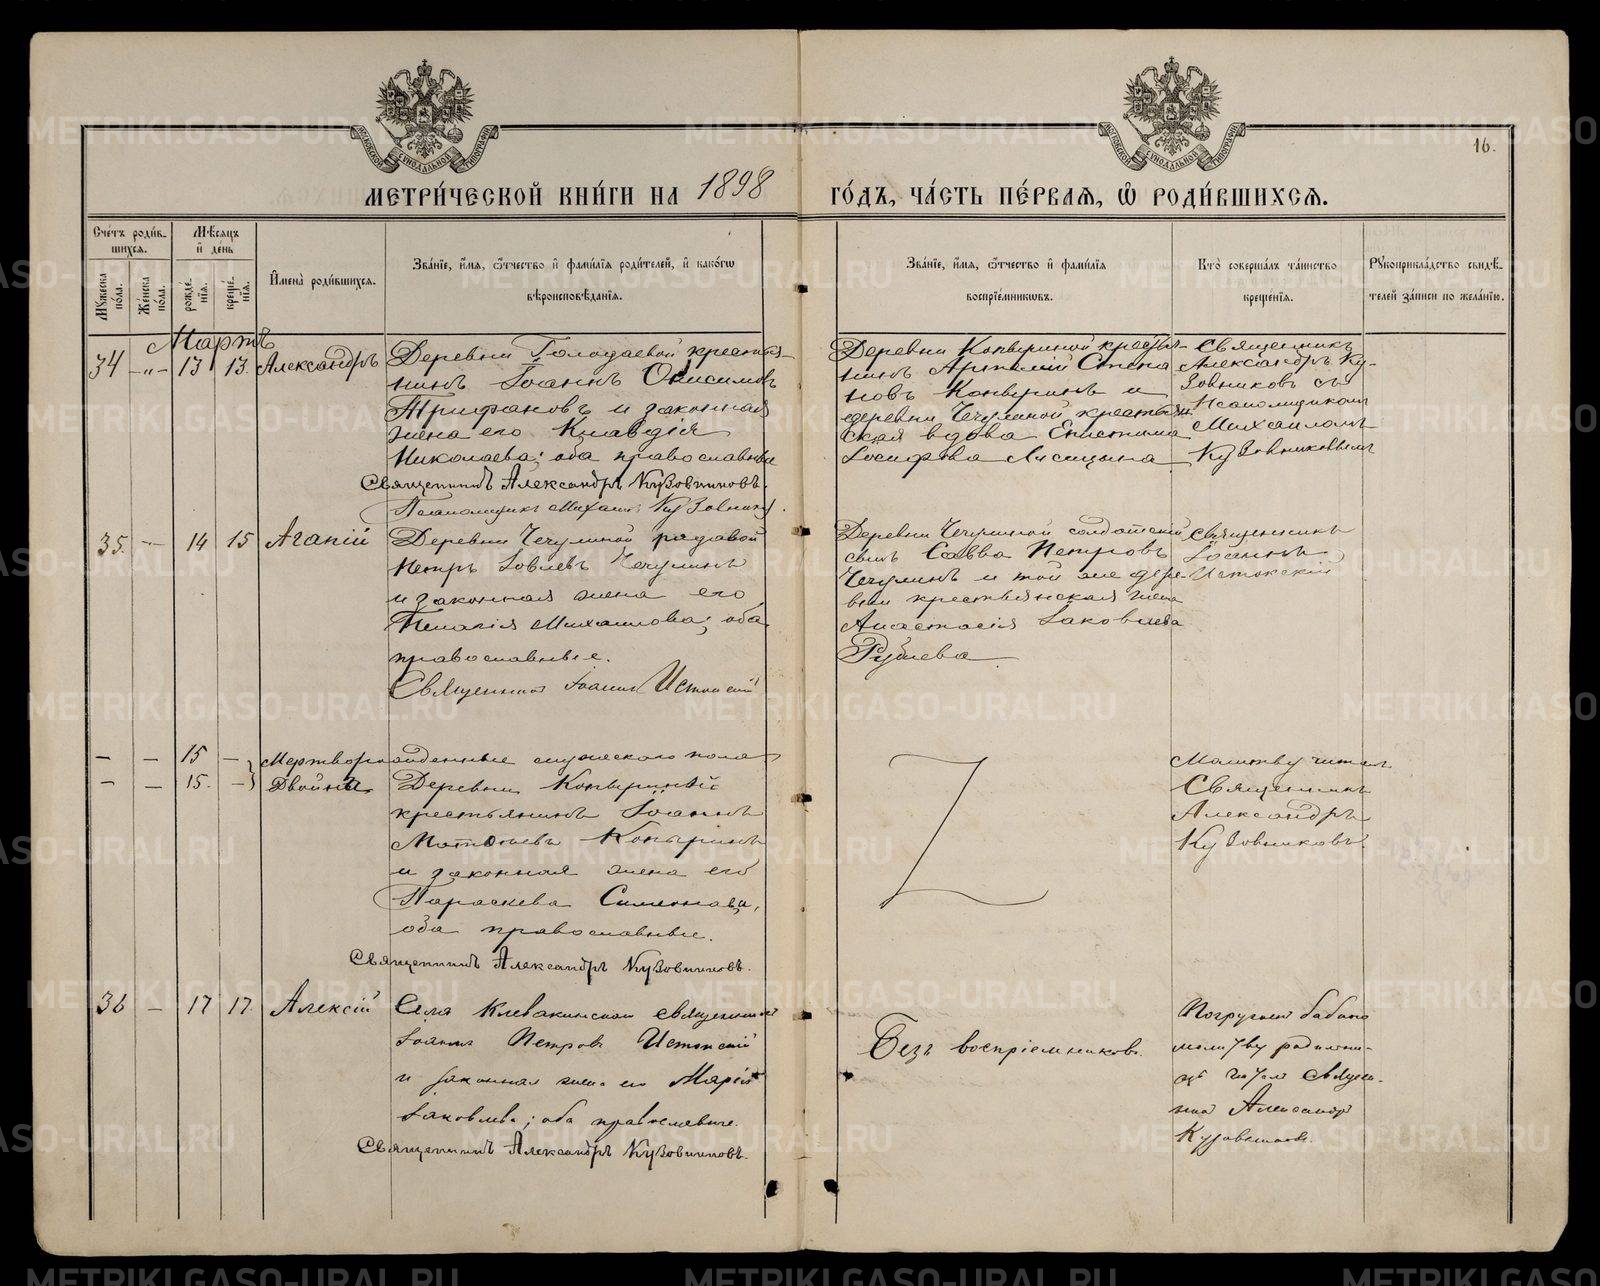 16.
МЕТРИ́ЧЕСКОЙ КНИ́ГИ НА 1898 ГО́ДЪ, ЧА́СТЬ ПЕ́РВАЯ, Ѿ РОДИ́ВШИХСѦ.
Сче́тъ роди́в-
шихся.
Мѣ́сяцъ
и де́нь
Му́жеска по́ла.
Же́нска по́ла.
рожде́-нїя.
креще́-нїя.
Имена̀ роди́вшихся.
Зва́нїе, и́мя, ѻ́тчество и фами́лїя роди́телей, и како́гѡ
вѣроисповѣ́данїя.
Зва́нїе, и́мя, ѻ́тчество и фами́лїя
воспрїе́мниковъ.
Кто̀ соверша́лъ та́инство
креще́нїя.
Рꙋкоприкла́дство свидѣ́-
телей за́писи по жела́нїю.
Мартъ
34 -"- 13 13. Александръ
Деревни Голодаевой крестья-
нинъ Іоаннъ Онисимовъ
Трифановъ и законная
жена его Клавдія
Николаева; оба православные
Священникъ Александръ Кузовниковъ.
Псаломщикъ Михаилъ Кузовников
Деревни Копыриной крестья-
нинъ Артемій Степа
новъ Копыринъ и
деревни Чечулиной крестьян
ская вдова Епистима
Іосифова Лисицына
Священникъ
Александръ Ку-
зовниковъ съ
псаломщикомъ
Михаиломъ
Кузовниковымъ
35. — 14 15 Агапій
Деревни Чечулиной рядовой
Петръ Іовлевъ Чечулинъ
и законная жена его
Пелагія Михаилова; оба
православные.
Священникъ Іоаннъ Истокскій
Деревни Чечулиной солдатскій
сынъ Савва Петровъ
Чечулинъ и той же дере-
вни крестьянская жена
Анастасія Іаковлева
Рублева
Священникъ
Іоаннъ
Истокскій
— — 15 — Мертворожденные мужескаго пола
— — 15. — Двойни
Деревни Копыриной
крестьянинъ Іоаннъ
Матѳіевъ Копыринъ
и законная жена его
Параскева Симеонова,
оба православные.
Священникъ Александръ Кузовниковъ.
Молитву читалъ
Священникъ
Александръ
Кузовниковъ
36 — 17 17. Алексій
Села Клевакинскаго священникъ
Іоаннъ Петровъ Истокскій
и законная жена его Марія
Іаковлева; оба православные.
Священникъ Александръ Кузовниковъ.
Безъ воспріемниковъ.
Погружен бабкою
молитву родильни-
цѣ читалъ Священ-
никъ Александръ
Кузовниковъ.
METRIKI.GASO-URAL.RU